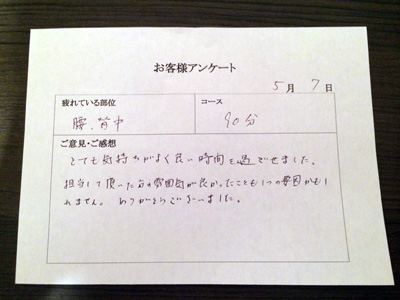 お客様アンケート
5月 7日
疲れている部位
コース
腰、背中
90分
ご意見・ご感想
とても気持ちがよく良い時間を過ごせました。
担当して頂いた方の雰囲気が良かったことも1つの要因かもし
れません。ありがとうございました。